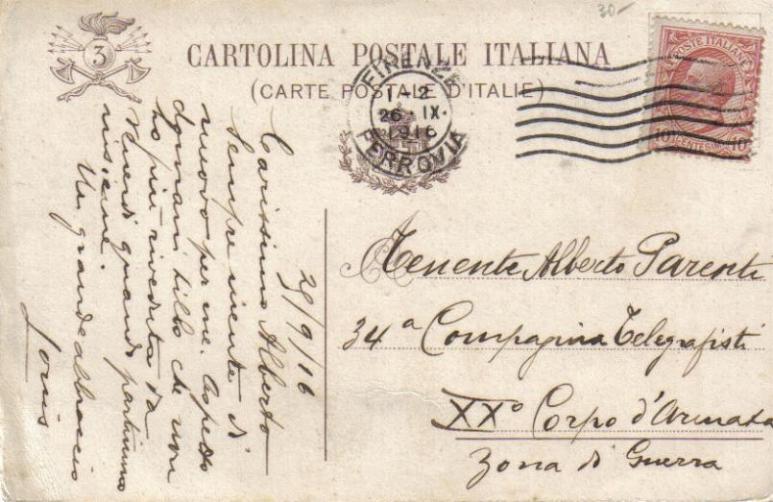 30-
3
CARTOLINA POSTALE ITALIANA
(CARTE POSTALE D'ITALIE)
FIRENZE
1-2
26 IX.
1916
FERROVIA
POSTE ITALIANE
10 CENTESIMI 10
25/9/16
Carissimo Alberto
Sempre niente di
nuovo per me. Aspetto
domani Bilbo che non
ho più riveduto da
quando partimmo
insieme.
Un grande abbraccio
Tenente Alberto Parenti
34a Compagnia Telegrafisti
XXo Corpo d'Armata
Zona di Guerra